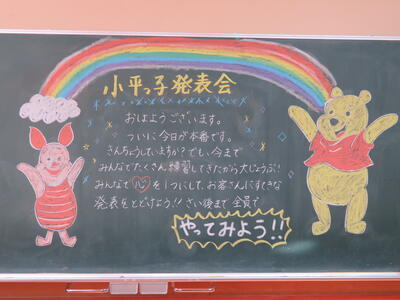 小平っ子発表会
おはようございます。
ついに今日が本番です。
きんちょうしていますか？でも、今まで
みんなでたくさん練習してきたから大じょうぶ！
みんなで心を1つにして、お客さんにすてきな
発表をとどけよう！！さい後まで全員で
やってみよう！！